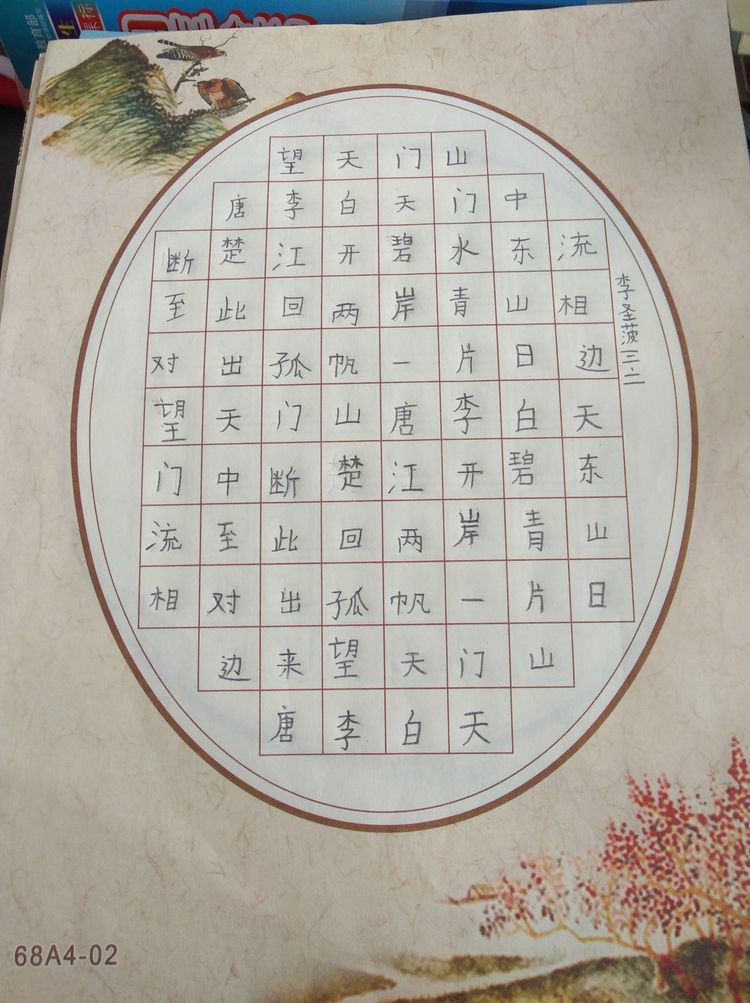 教育部
生
课标
望天门山
唐李白天门中
断楚江开碧水东流
至此回两岸青山相
对出孤帆一片日边
望天门山唐李白天
门中断楚江开碧东
流至此回两岸青山
相对出孤帆一片日
边来望天门山
唐李白天
李圣菠三二
68A4-02